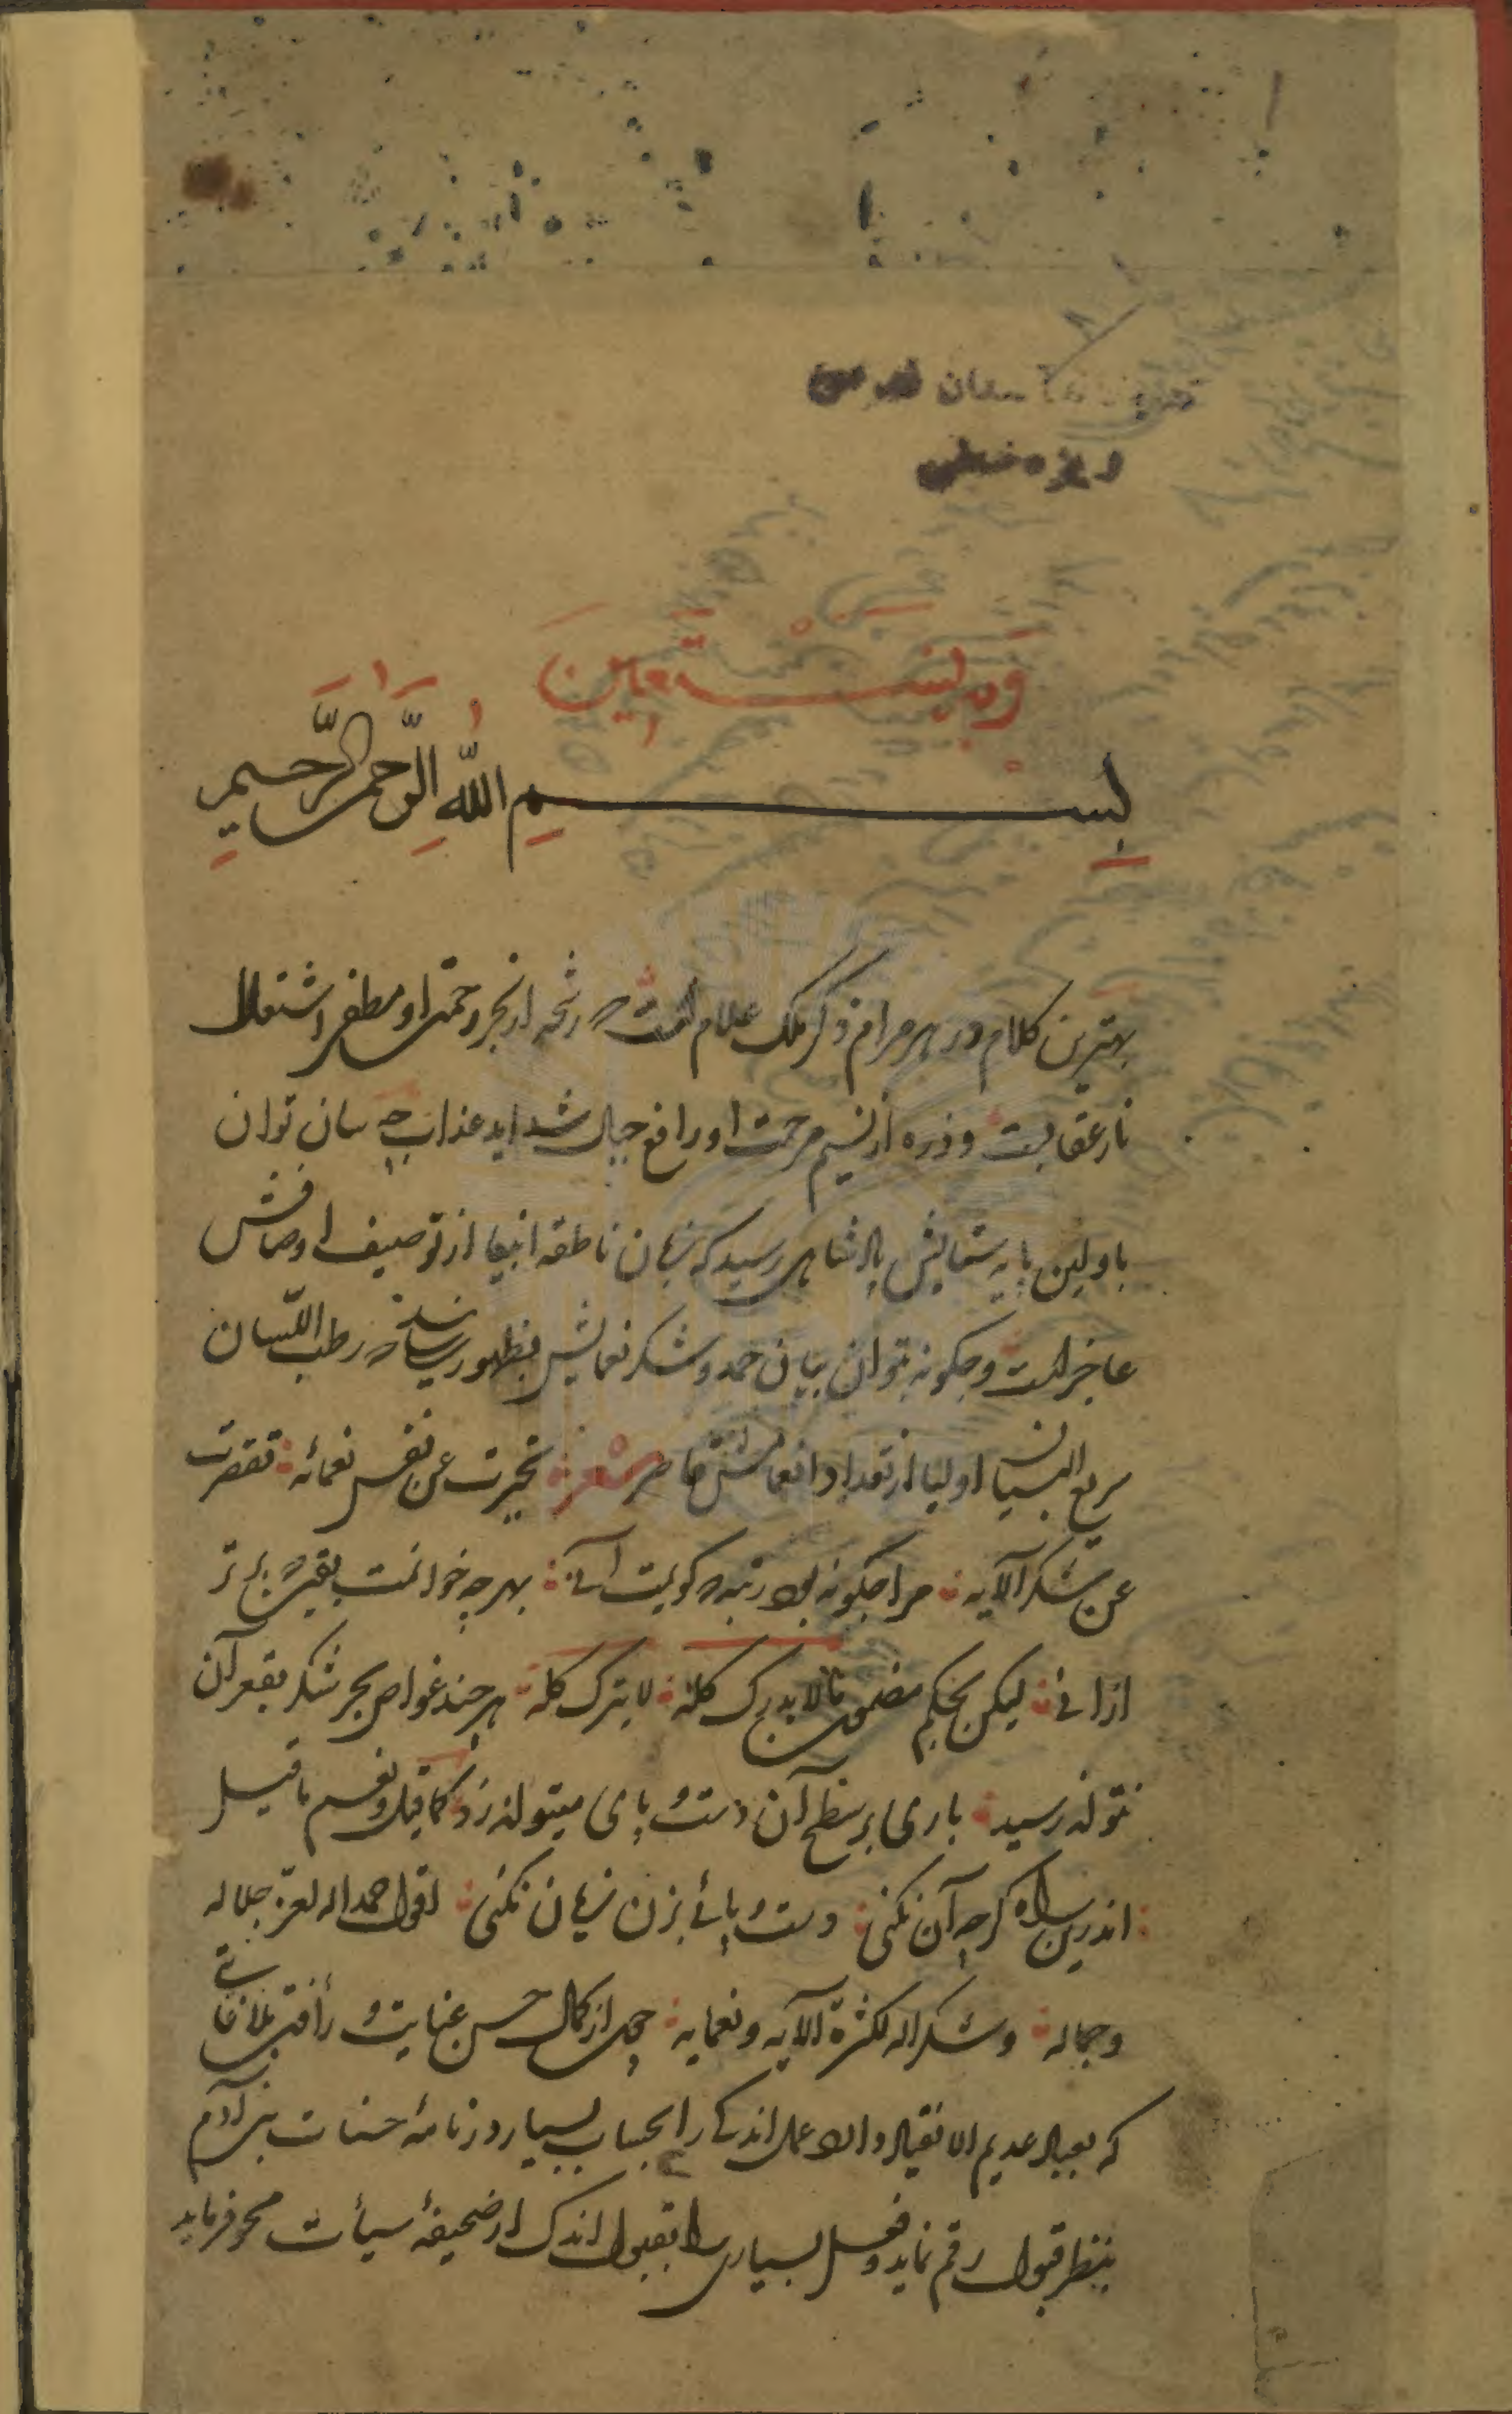 وبه نستعین
بسم الله الرحمن الرحیم
بهترین کلام در هر مرام ذکر ملک علام است که رشحه از بحر رحمت او مطفی اشتعال
نار عقابست و ذره از نسیم مرحمت او رافع جبال شداید عذاب چه سان توان
باولین پایه ستایش پادشاهی رسید که زبان ناطقه انبیا از توصیف اوصافش
عاجز است و چکونه بتوان بیان حمد و شکر نعمایش بظهور رسانید که رطب اللسان
سریع البیان اولیا از تعداد انعامش قاصر شعر تحیرت عن نفس نعمائه تقصرت
عن شکر آلایه مرا چکونه بود رتبه که کویمت آنی بهر چه خوانمت بیقین برتر
ازانی لیکن بحکم مضمون مالا یدرک کله لا یترک کله هر چند غواص بحر شکر بقعر آن
نتواند رسید باری بر سطح آن دست و پای میتواند زد کما قیل و نعم ما قیل
اندرین راه کرچه آن نکنی دست و پائی بزن زیان نکنی اقول حمدا له لعز جلاله
و جماله و شکرا له لکثرة آلایه و نعمایه چه از کمال حسن عنایت و رأفت بلا غایتی
که بعباد عدیم الانقیاد دارد عمل اندکی را بحساب بسیار در نامهٔ حسنات بنی آدم
بنظر قبول رقم نماید و فعل بسیاری را بقبول اندک از صحیفهٔ سیأت محو فرماید